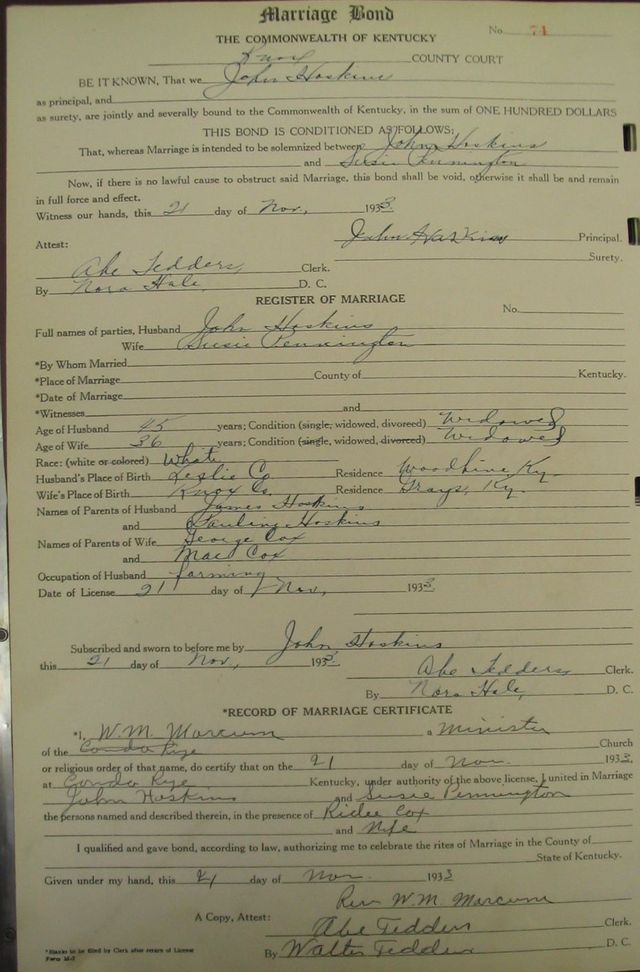 Marriage Bond
No. 71
THE COMMONWEALTH OF KENTUCKY
Knox COUNTY COURT
BE IT KNOWN, That we John Hoskins
as principal, and
as surety, are jointly and severally bound to the Commonwealth of Kentucky, in the sum of ONE HUNDRED DOLLARS
THIS BOND IS CONDITIONED AS FOLLOWS:
That, whereas Marriage is intended to be solemnized between John Hoskins
and Susie Pennington
Now, if there is no lawful cause to obstruct said Marriage, this bond shall be void, otherwise it shall be and remain
in full force and effect.
Witness our hands, this 21 day of Nov, 1933
John Haskins Principal.
Attest: Surety.
Abe Tedders, Clerk.
By Nora Hale, D. C.
REGISTER OF MARRIAGE
No.
Full names of parties, Husband John Hoskins
Wife Susie Pennington
*By Whom Married
*Place of Marriage County of Kentucky.
*Date of Marriage
*Witnesses and
Age of Husband 45 years; Condition (single, widowed, divorced) Widowed
Age of Wife 36 years; Condition (single, widowed, divorced) Widowed
Race: (white or colored) White
Husband's Place of Birth Leslie Co. Residence Woodbine Ky.
Wife's Place of Birth Knox Co. Residence Grays, Ky.
Names of Parents of Husband James Hoskins
and Pauline Hoskins
Names of Parents of Wife George Cox
and Mae Cox
Occupation of Husband farming
Date of License 21 day of Nov, 1933
Subscribed and sworn to before me by John Hoskins
this 21 day of Nov, 1933
Abe Tedders, Clerk.
By Nora Hale, D. C.
*RECORD OF MARRIAGE CERTIFICATE
*I, W.M. Marcum a Minister
of the Church
or religious order of that name, do certify that on the 21 day of Nov. 1933,
at Kentucky, under authority of the above license, I united in Marriage
John Hoskins and Susie Pennington
the persons named and described therein, in the presence of Cox
and
I qualified and gave bond, according to law, authorizing me to celebrate the rites of Marriage in the County of
State of Kentucky.
Given under my hand, this 21 day of Nov. 1933
Rev W.M. Marcum
A Copy, Attest: Abe Tedders Clerk.
By Walter Tedders D. C.
*Blanks to be filled by Clerk after return of License